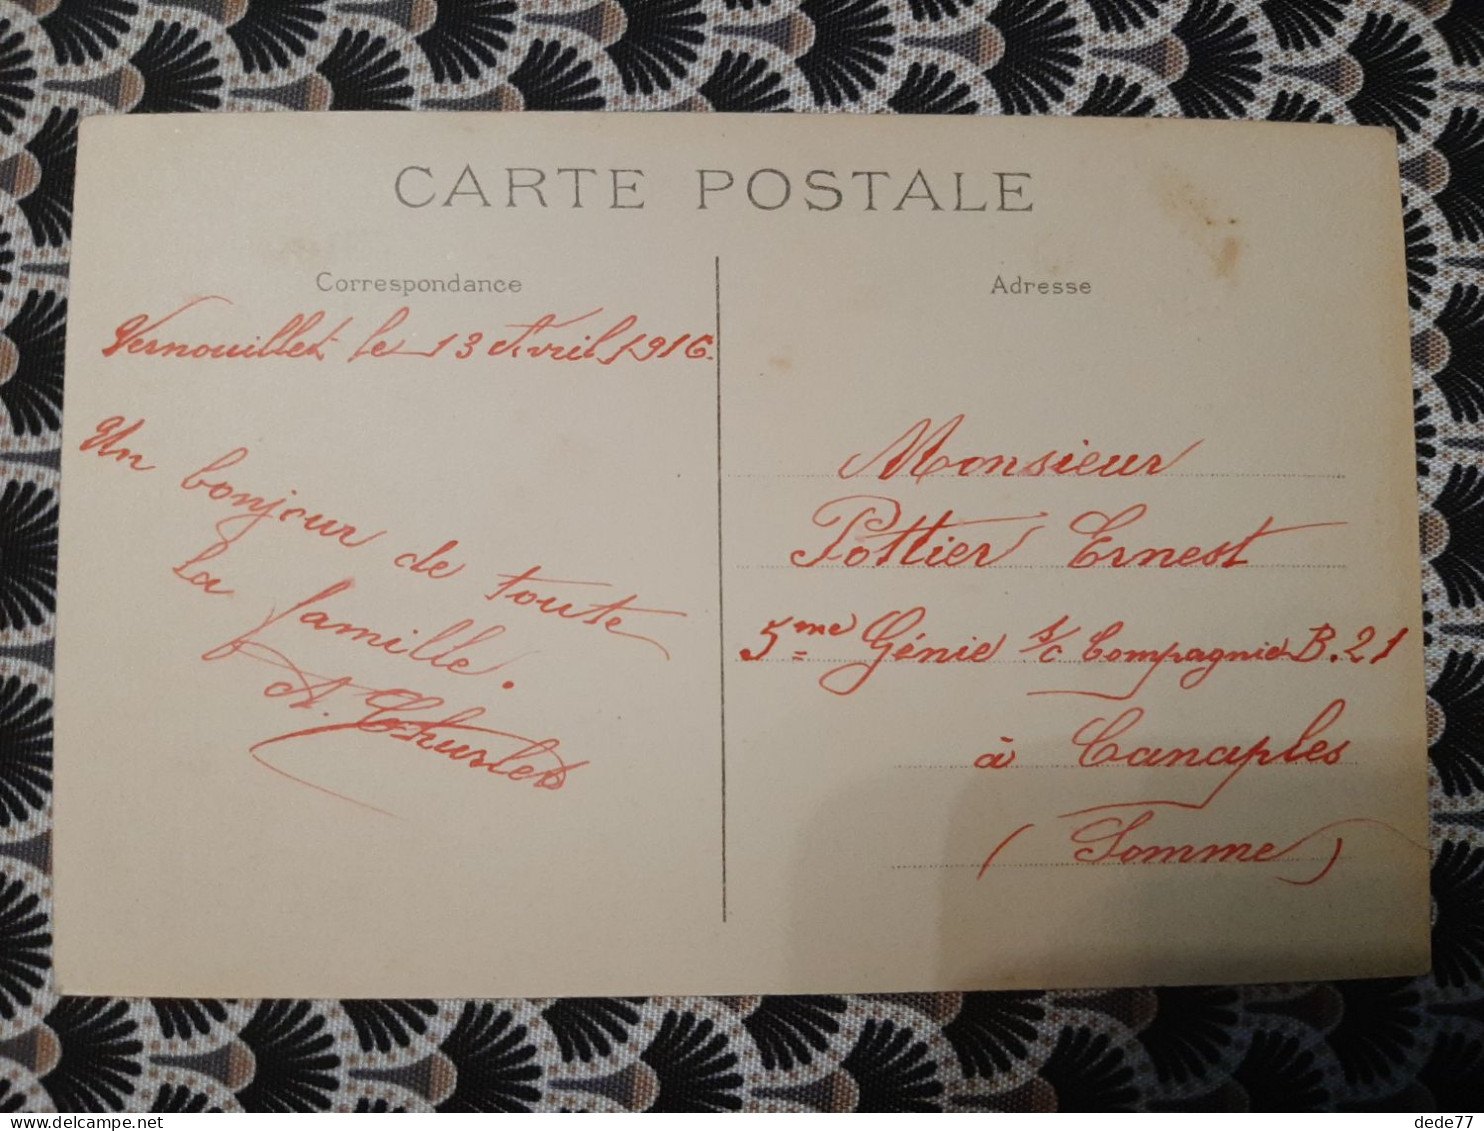 CARTE POSTALE
Correspondance
Vernouillet le 13 Avril 1916.
Un bonjour de toute
la famille.
A.
Adresse
Monsieur
Pottier Ernest
5me Génie s/c Compagnie B.21
à Canaples
(Somme)
dede77